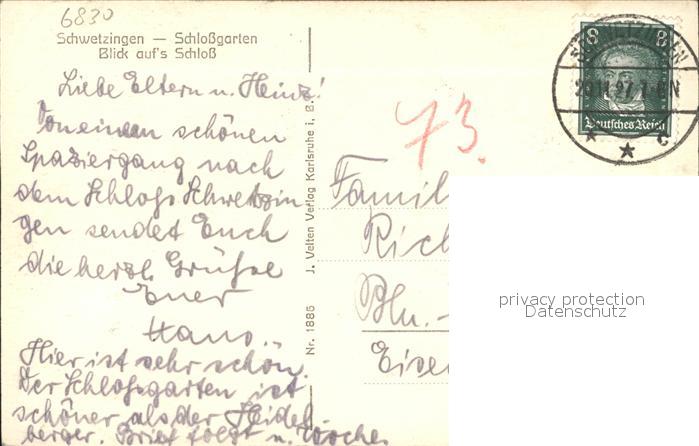 6830
Schwetzingen — Schloßgarten
Blick auf's Schloß
Liebe Eltern u. Heinz!
Von einem schönen
Spaziergang nach
dem Schloß Schwetzin
gen sendet Euch
die herzl. Grüße
Euer
Hans.
Hier ist sehr schön.
Der Schloßgarten ist
schöner als der Heidel-
berger. Brief folgt u.
Nr. 1886
J. Velten Verlag Karlsruhe i. B.
73.
Famil
Rich
Bln.-
Eise
8 8
Deutsches Reich
C
privacy protection
Datenschutz